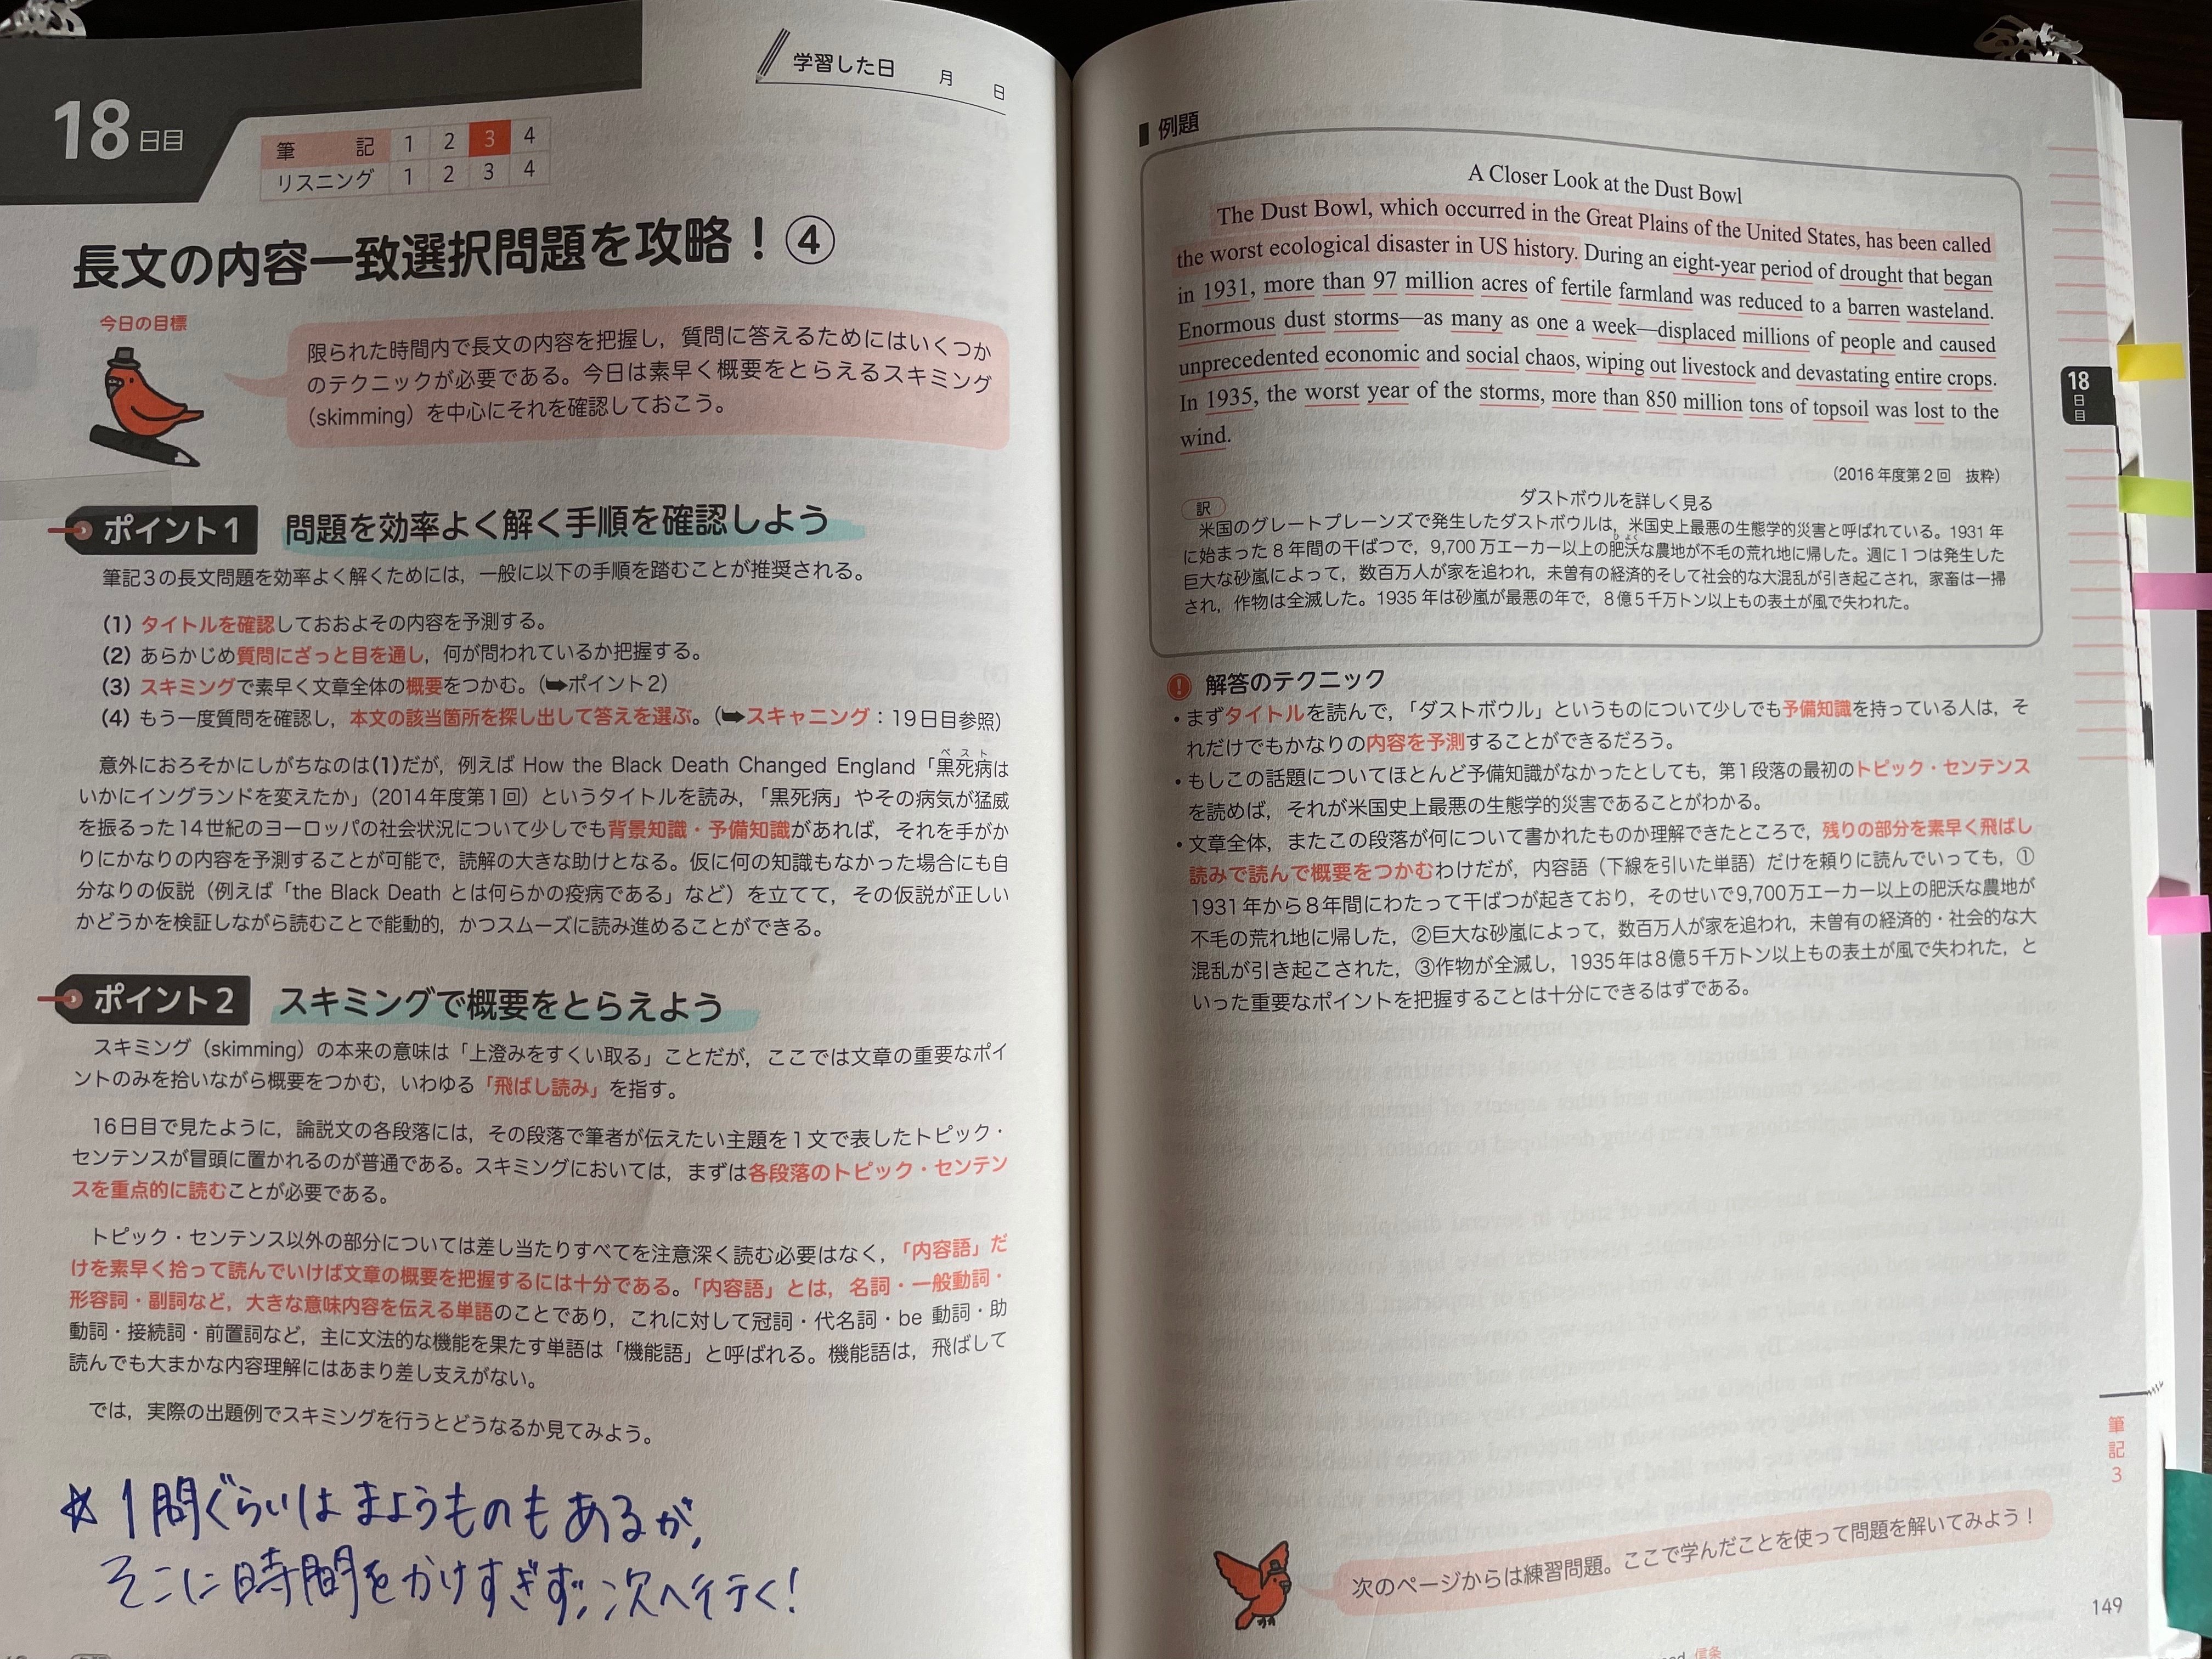 18日目
学習した日 月 日
筆記 1 2 3 4
リスニング 1 2 3 4
長文の内容一致選択問題を攻略！④
今日の目標
限られた時間内で長文の内容を把握し，質問に答えるためにはいくつか
のテクニックが必要である。今日は素早く概要をとらえるスキミング
（skimming）を中心にそれを確認しておこう。
ポイント1 問題を効率よく解く手順を確認しよう
筆記3の長文問題を効率よく解くためには，一般に以下の手順を踏むことが推奨される。
(1) タイトルを確認しておおよその内容を予測する。
(2) あらかじめ質問にざっと目を通し，何が問われているか把握する。
(3) スキミングで素早く文章全体の概要をつかむ。（➡ポイント2）
(4) もう一度質問を確認し，本文の該当箇所を探し出して答えを選ぶ。（➡スキャニング：19日目参照）
ペスト
意外におろそかにしがちなのは(1)だが，例えば How the Black Death Changed England「黒死病は
いかにイングランドを変えたか」（2014年度第1回）というタイトルを読み，「黒死病」やその病気が猛威
を振るった14世紀のヨーロッパの社会状況について少しでも背景知識・予備知識があれば，それを手がか
りにかなりの内容を予測することが可能で，読解の大きな助けとなる。仮に何の知識もなかった場合にも自
分なりの仮説（例えば「the Black Death とは何らかの疫病である」など）を立てて，その仮説が正しい
かどうかを検証しながら読むことで能動的，かつスムーズに読み進めることができる。
ポイント2 スキミングで概要をとらえよう
スキミング（skimming）の本来の意味は「上澄みをすくい取る」ことだが，ここでは文章の重要なポイ
ントのみを拾いながら概要をつかむ，いわゆる「飛ばし読み」を指す。
16日目で見たように，論説文の各段落には，その段落で筆者が伝えたい主題を1文で表したトピック・
センテンスが冒頭に置かれるのが普通である。スキミングにおいては，まずは各段落のトピック・センテン
スを重点的に読むことが必要である。
トピック・センテンス以外の部分については差し当たりすべてを注意深く読む必要はなく，「内容語」だ
けを素早く拾って読んでいけば文章の概要を把握するには十分である。「内容語」とは，名詞・一般動詞・
形容詞・副詞など，大きな意味内容を伝える単語のことであり，これに対して冠詞・代名詞・be 動詞・助
動詞・接続詞・前置詞など，主に文法的な機能を果たす単語は「機能語」と呼ばれる。機能語は，飛ばして
読んでも大まかな内容理解にはあまり差し支えがない。
では，実際の出題例でスキミングを行うとどうなるか見てみよう。
☆ 1問ぐらいはまようものもあるが，
そこに時間をかけすぎず，次へ行く！
例題
A Closer Look at the Dust Bowl
The Dust Bowl, which occurred in the Great Plains of the United States, has been called
the worst ecological disaster in US history. During an eight-year period of drought that began
in 1931, more than 97 million acres of fertile farmland was reduced to a barren wasteland.
Enormous dust storms—as many as one a week—displaced millions of people and caused
unprecedented economic and social chaos, wiping out livestock and devastating entire crops.
In 1935, the worst year of the storms, more than 850 million tons of topsoil was lost to the
wind.
（2016年度第2回 抜粋）
訳 ダストボウルを詳しく見る
米国のグレートプレーンズで発生したダストボウルは，米国史上最悪の生態学的災害と呼ばれている。1931年
ひよく
に始まった8年間の干ばつで，9,700万エーカー以上の肥沃な農地が不毛の荒れ地に帰した。週に1つは発生した
巨大な砂嵐によって，数百万人が家を追われ，未曽有の経済的そして社会的な大混乱が引き起こされ，家畜は一掃
され，作物は全滅した。1935年は砂嵐が最悪の年で，8億5千万トン以上もの表土が風で失われた。
！ 解答のテクニック
・まずタイトルを読んで，「ダストボウル」というものについて少しでも予備知識を持っている人は，そ
れだけでもかなりの内容を予測することができるだろう。
・もしこの話題についてほとんど予備知識がなかったとしても，第1段落の最初のトピック・センテンス
を読めば，それが米国史上最悪の生態学的災害であることがわかる。
・文章全体，またこの段落が何について書かれたものか理解できたところで，残りの部分を素早く飛ばし
読みで読んで概要をつかむわけだが，内容語（下線を引いた単語）だけを頼りに読んでいっても，①
1931年から8年間にわたって干ばつが起きており，そのせいで9,700万エーカー以上の肥沃な農地が
不毛の荒れ地に帰した，②巨大な砂嵐によって，数百万人が家を追われ，未曽有の経済的・社会的な大
混乱が引き起こされた，③作物が全滅し，1935年は8億5千万トン以上もの表土が風で失われた，と
いった重要なポイントを把握することは十分にできるはずである。
18日目
筆記3
次のページからは練習問題。ここで学んだことを使って問題を解いてみよう！
149
信条